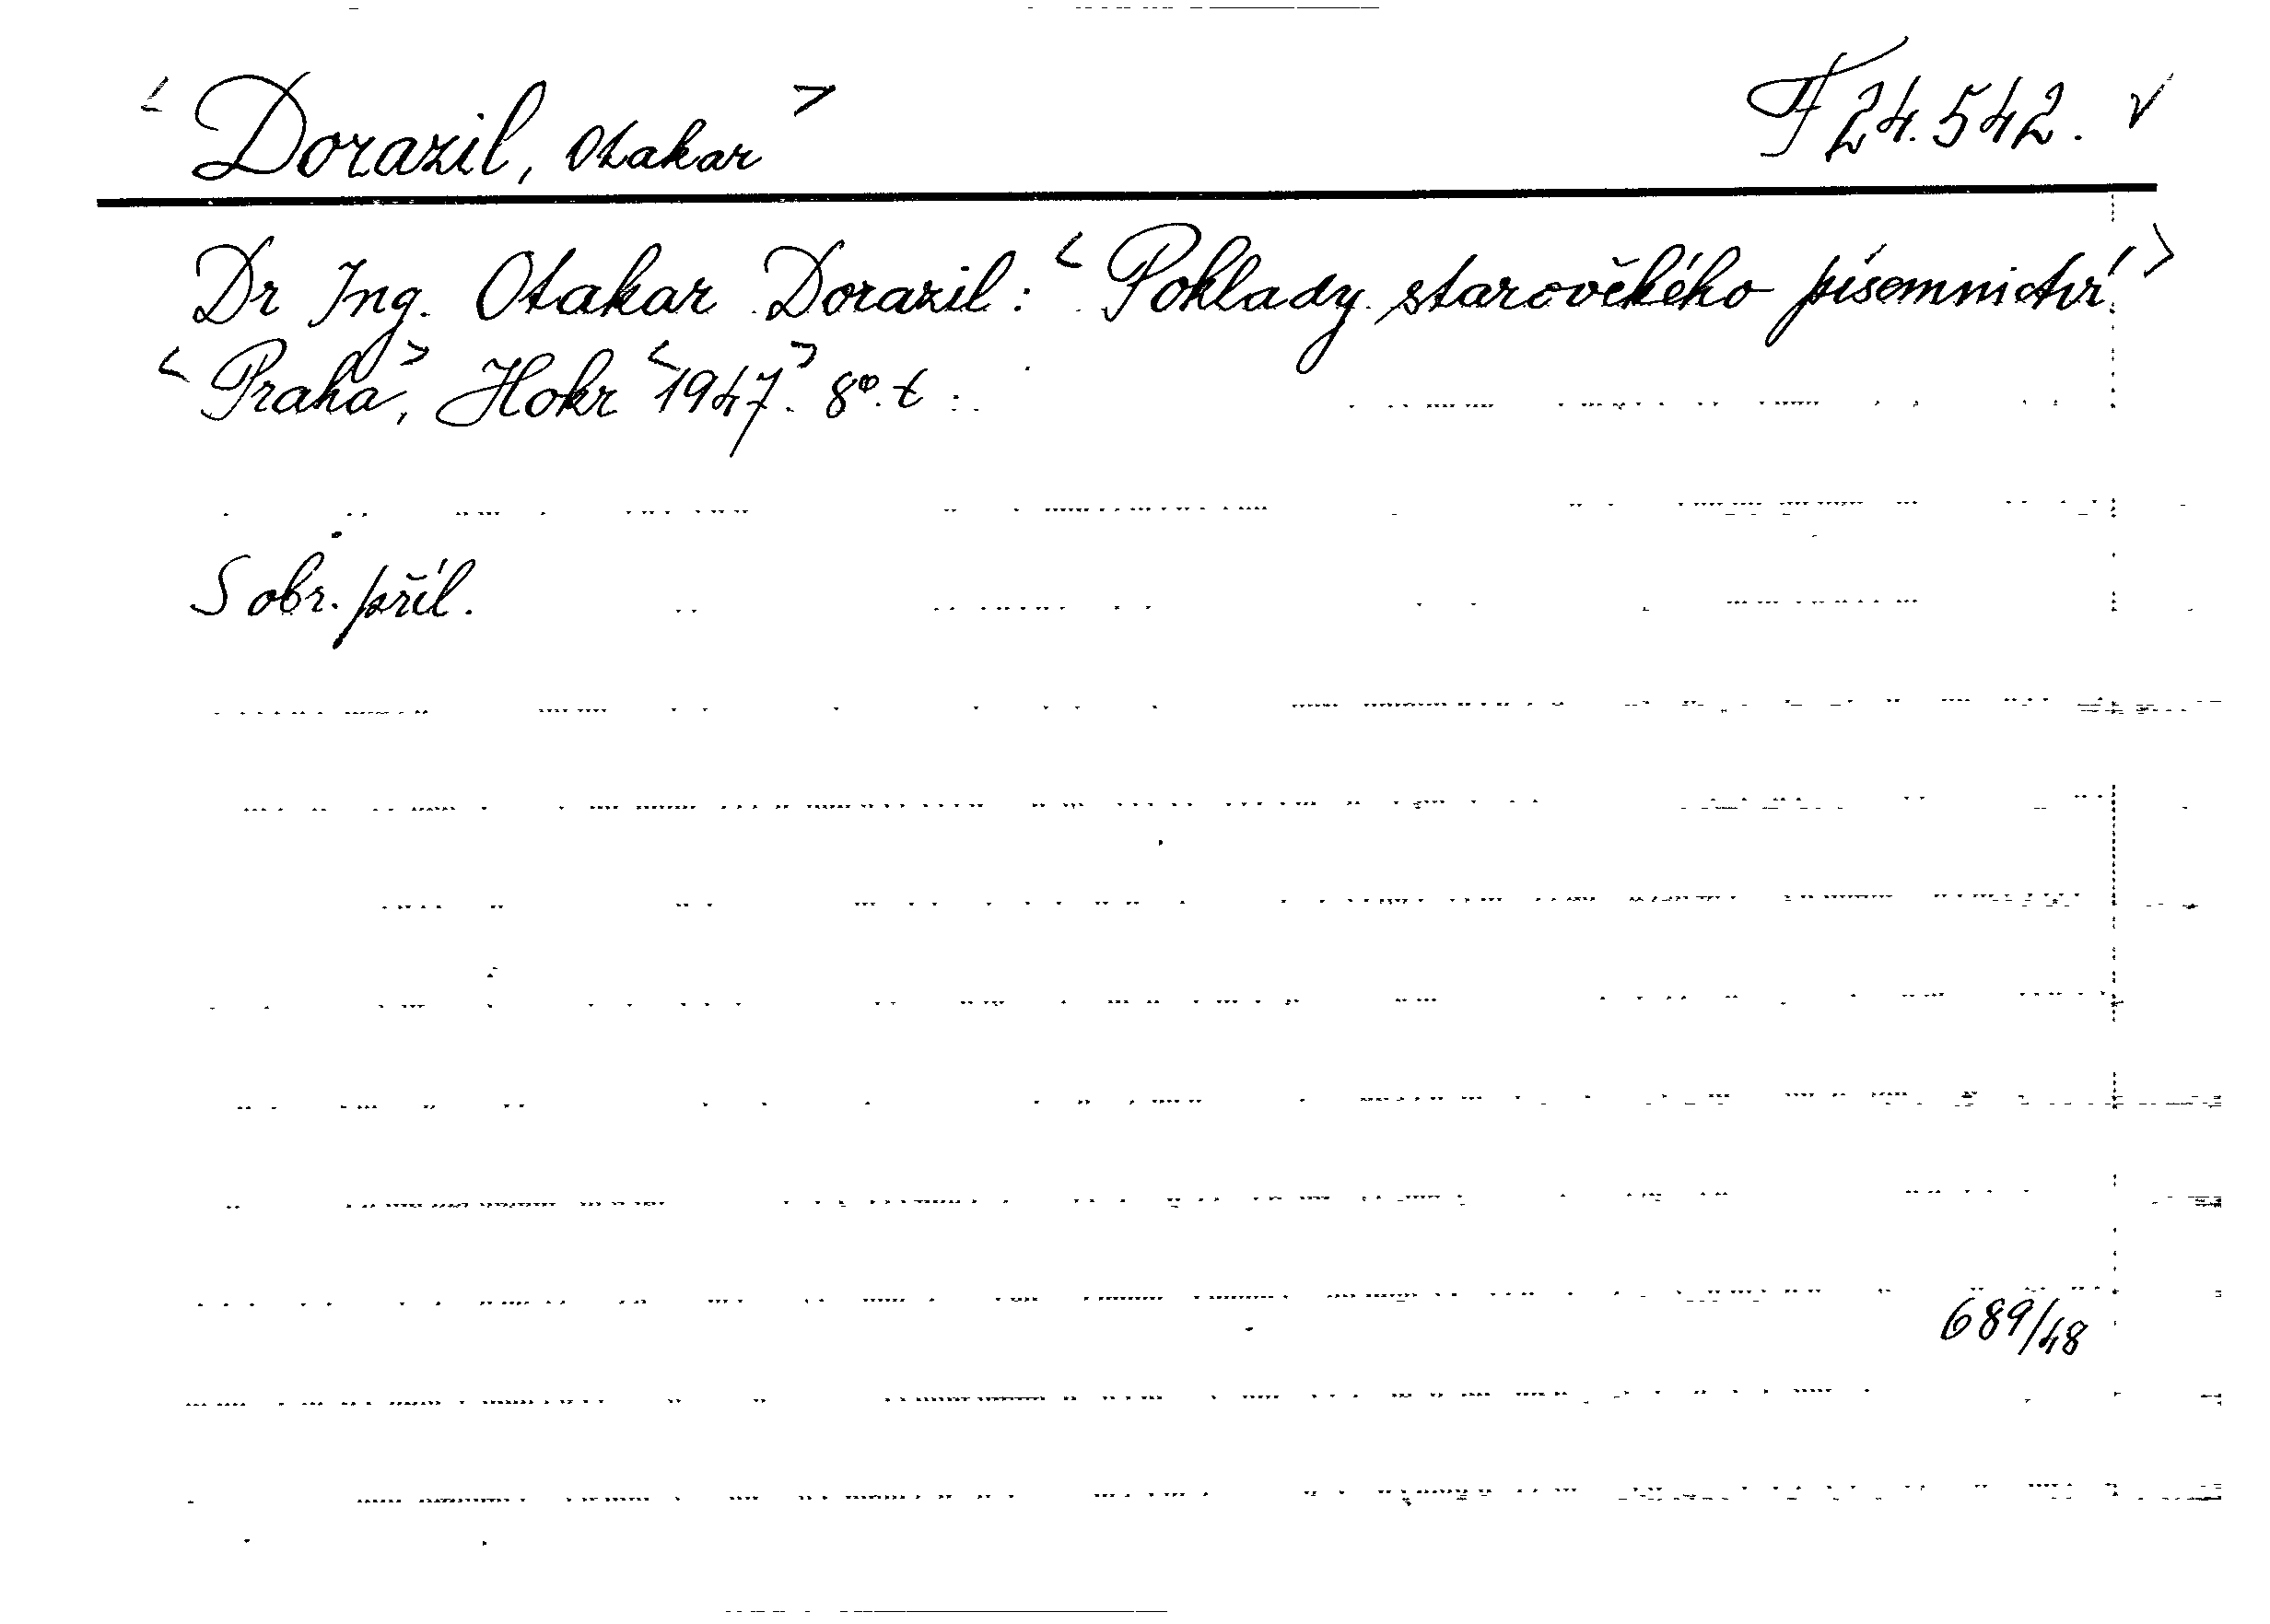 < Dorazil, Otakar > F 24.542. ✓
Dr Ing. Otakar Dorazil: < Poklady starověkého písemnictví. >
< Praha >, Hokr < 1947. > 8°. t.
S obr. příl.
689/48